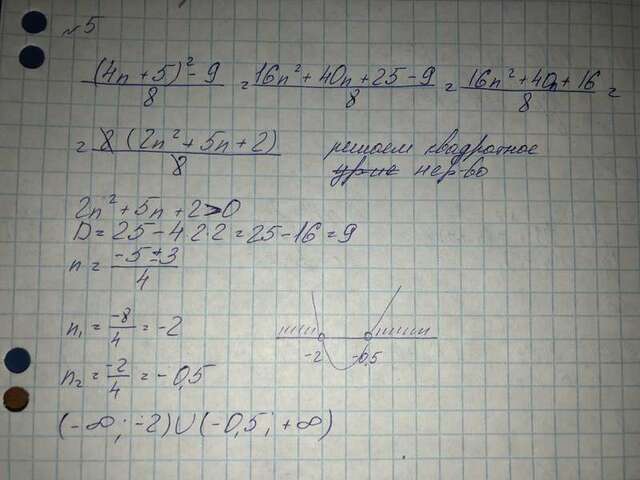 №5
(4n+5)²-9 / 8 = 16n²+40n+25-9 / 8 = 16n²+40n+16 / 8 =
= 8(2n²+5n+2) / 8
решаем квадратное
нер-во
2n²+5n+2>0
D=25-4·2·2=25-16=9
n = -5±3 / 4
n₁ = -8/4 = -2
n₂ = -2/4 = -0,5
-2 -0,5
(-∞; -2)∪(-0,5; +∞)